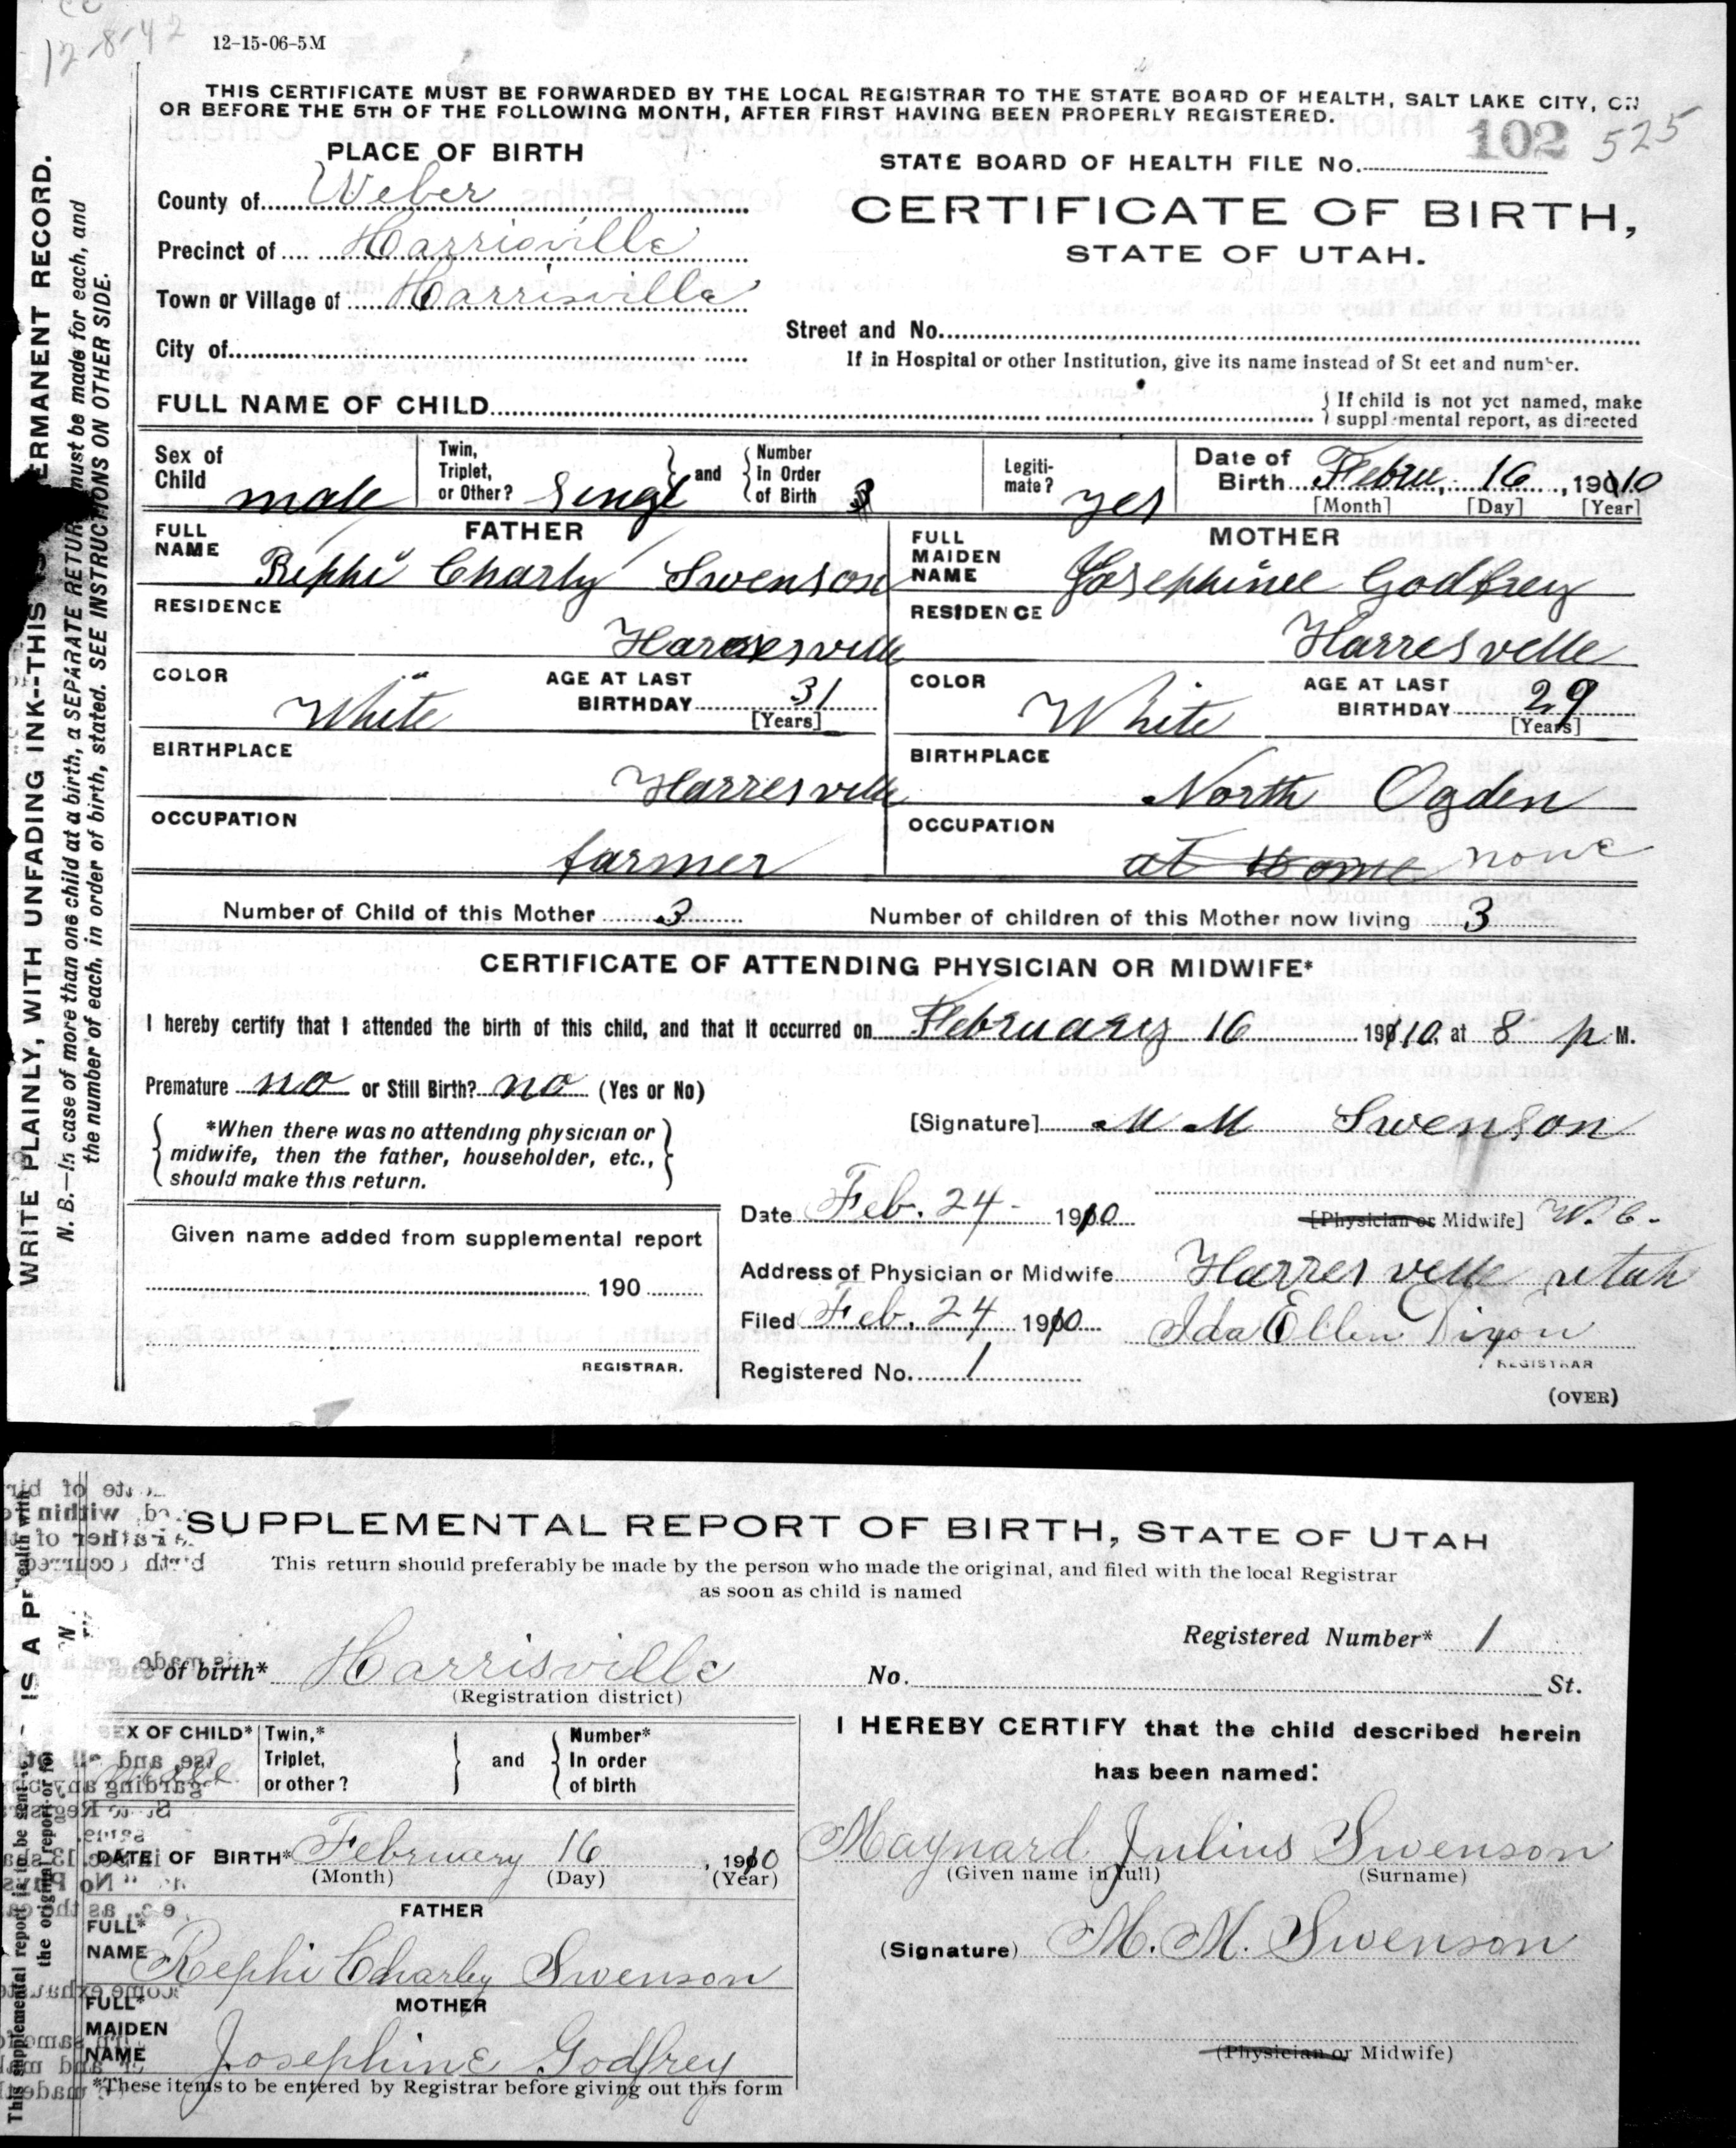 12-8-42
12-15-06-5M
THIS CERTIFICATE MUST BE FORWARDED BY THE LOCAL REGISTRAR TO THE STATE BOARD OF HEALTH, SALT LAKE CITY, ON
OR BEFORE THE 5TH OF THE FOLLOWING MONTH, AFTER FIRST HAVING BEEN PROPERLY REGISTERED.
102 525
STATE BOARD OF HEALTH FILE No.
PLACE OF BIRTH
County of Weber
Precinct of Harrisville
Town or Village of Harrisville
City of
CERTIFICATE OF BIRTH,
STATE OF UTAH.
Street and No.
If in Hospital or other Institution, give its name instead of St eet and number.
FULL NAME OF CHILD
If child is not yet named, make
suppl mental report, as directed
Sex of Child male
Twin, Triplet, or Other? Singl
and Number In Order of Birth 3
Legiti-mate? yes
Date of Birth Febru, 16, 19010
[Month] [Day] [Year]
FATHER
FULL NAME Rephi Charly Swenson
RESIDENCE
Harresville
COLOR White
AGE AT LAST BIRTHDAY 31
[Years]
BIRTHPLACE
Harresville
OCCUPATION
farmer
MOTHER
FULL MAIDEN NAME Josephinee Godfrey
RESIDENCE
Harresvelle
COLOR White
AGE AT LAST BIRTHDAY 29
[Years]
BIRTHPLACE
North Ogden
OCCUPATION
at Home none
Number of Child of this Mother 3
Number of children of this Mother now living 3
CERTIFICATE OF ATTENDING PHYSICIAN OR MIDWIFE*
I hereby certify that I attended the birth of this child, and that it occurred on February 16 19010, at 8 p M.
Premature no or Still Birth? no (Yes or No)
*When there was no attending physician or
midwife, then the father, householder, etc.,
should make this return.
[Signature] M M Swenson
Date Feb. 24 - 1910
[Physician or Midwife] W. C.
Address of Physician or Midwife Harresvelle utah
Filed Feb. 24 1910
Ida Ellen Dixon
REGISTRAR
Registered No. 1
(OVER)
Given name added from supplemental report
190
REGISTRAR.
WRITE PLAINLY, WITH UNFADING INK--THIS ERMANENT RECORD.
N. B.—In case of more than one child at a birth, a SEPARATE RETUR must be made for each, and
the number of each, in order of birth, stated. SEE INSTRUCTIONS ON OTHER SIDE.
SUPPLEMENTAL REPORT OF BIRTH, STATE OF UTAH
This return should preferably be made by the person who made the original, and filed with the local Registrar
as soon as child is named
Registered Number* 1
of birth* Harrisville No. St.
(Registration district)
SEX OF CHILD* Male
Twin,* Triplet, or other?
and Number* In order of birth
DATE OF BIRTH* Februery 16, 1910
(Month) (Day) (Year)
FATHER
FULL* NAME Rephi Charley Swenson
MOTHER
FULL* MAIDEN NAME Josephine Godfrey
*These items to be entered by Registrar before giving out this form
I HEREBY CERTIFY that the child described herein
has been named:
Maynard Julius Swenson
(Given name in full) (Surname)
(Signature) M. M. Swenson
(Physician or Midwife)
This supplemental report is to be sent
the original report or for
IS A P